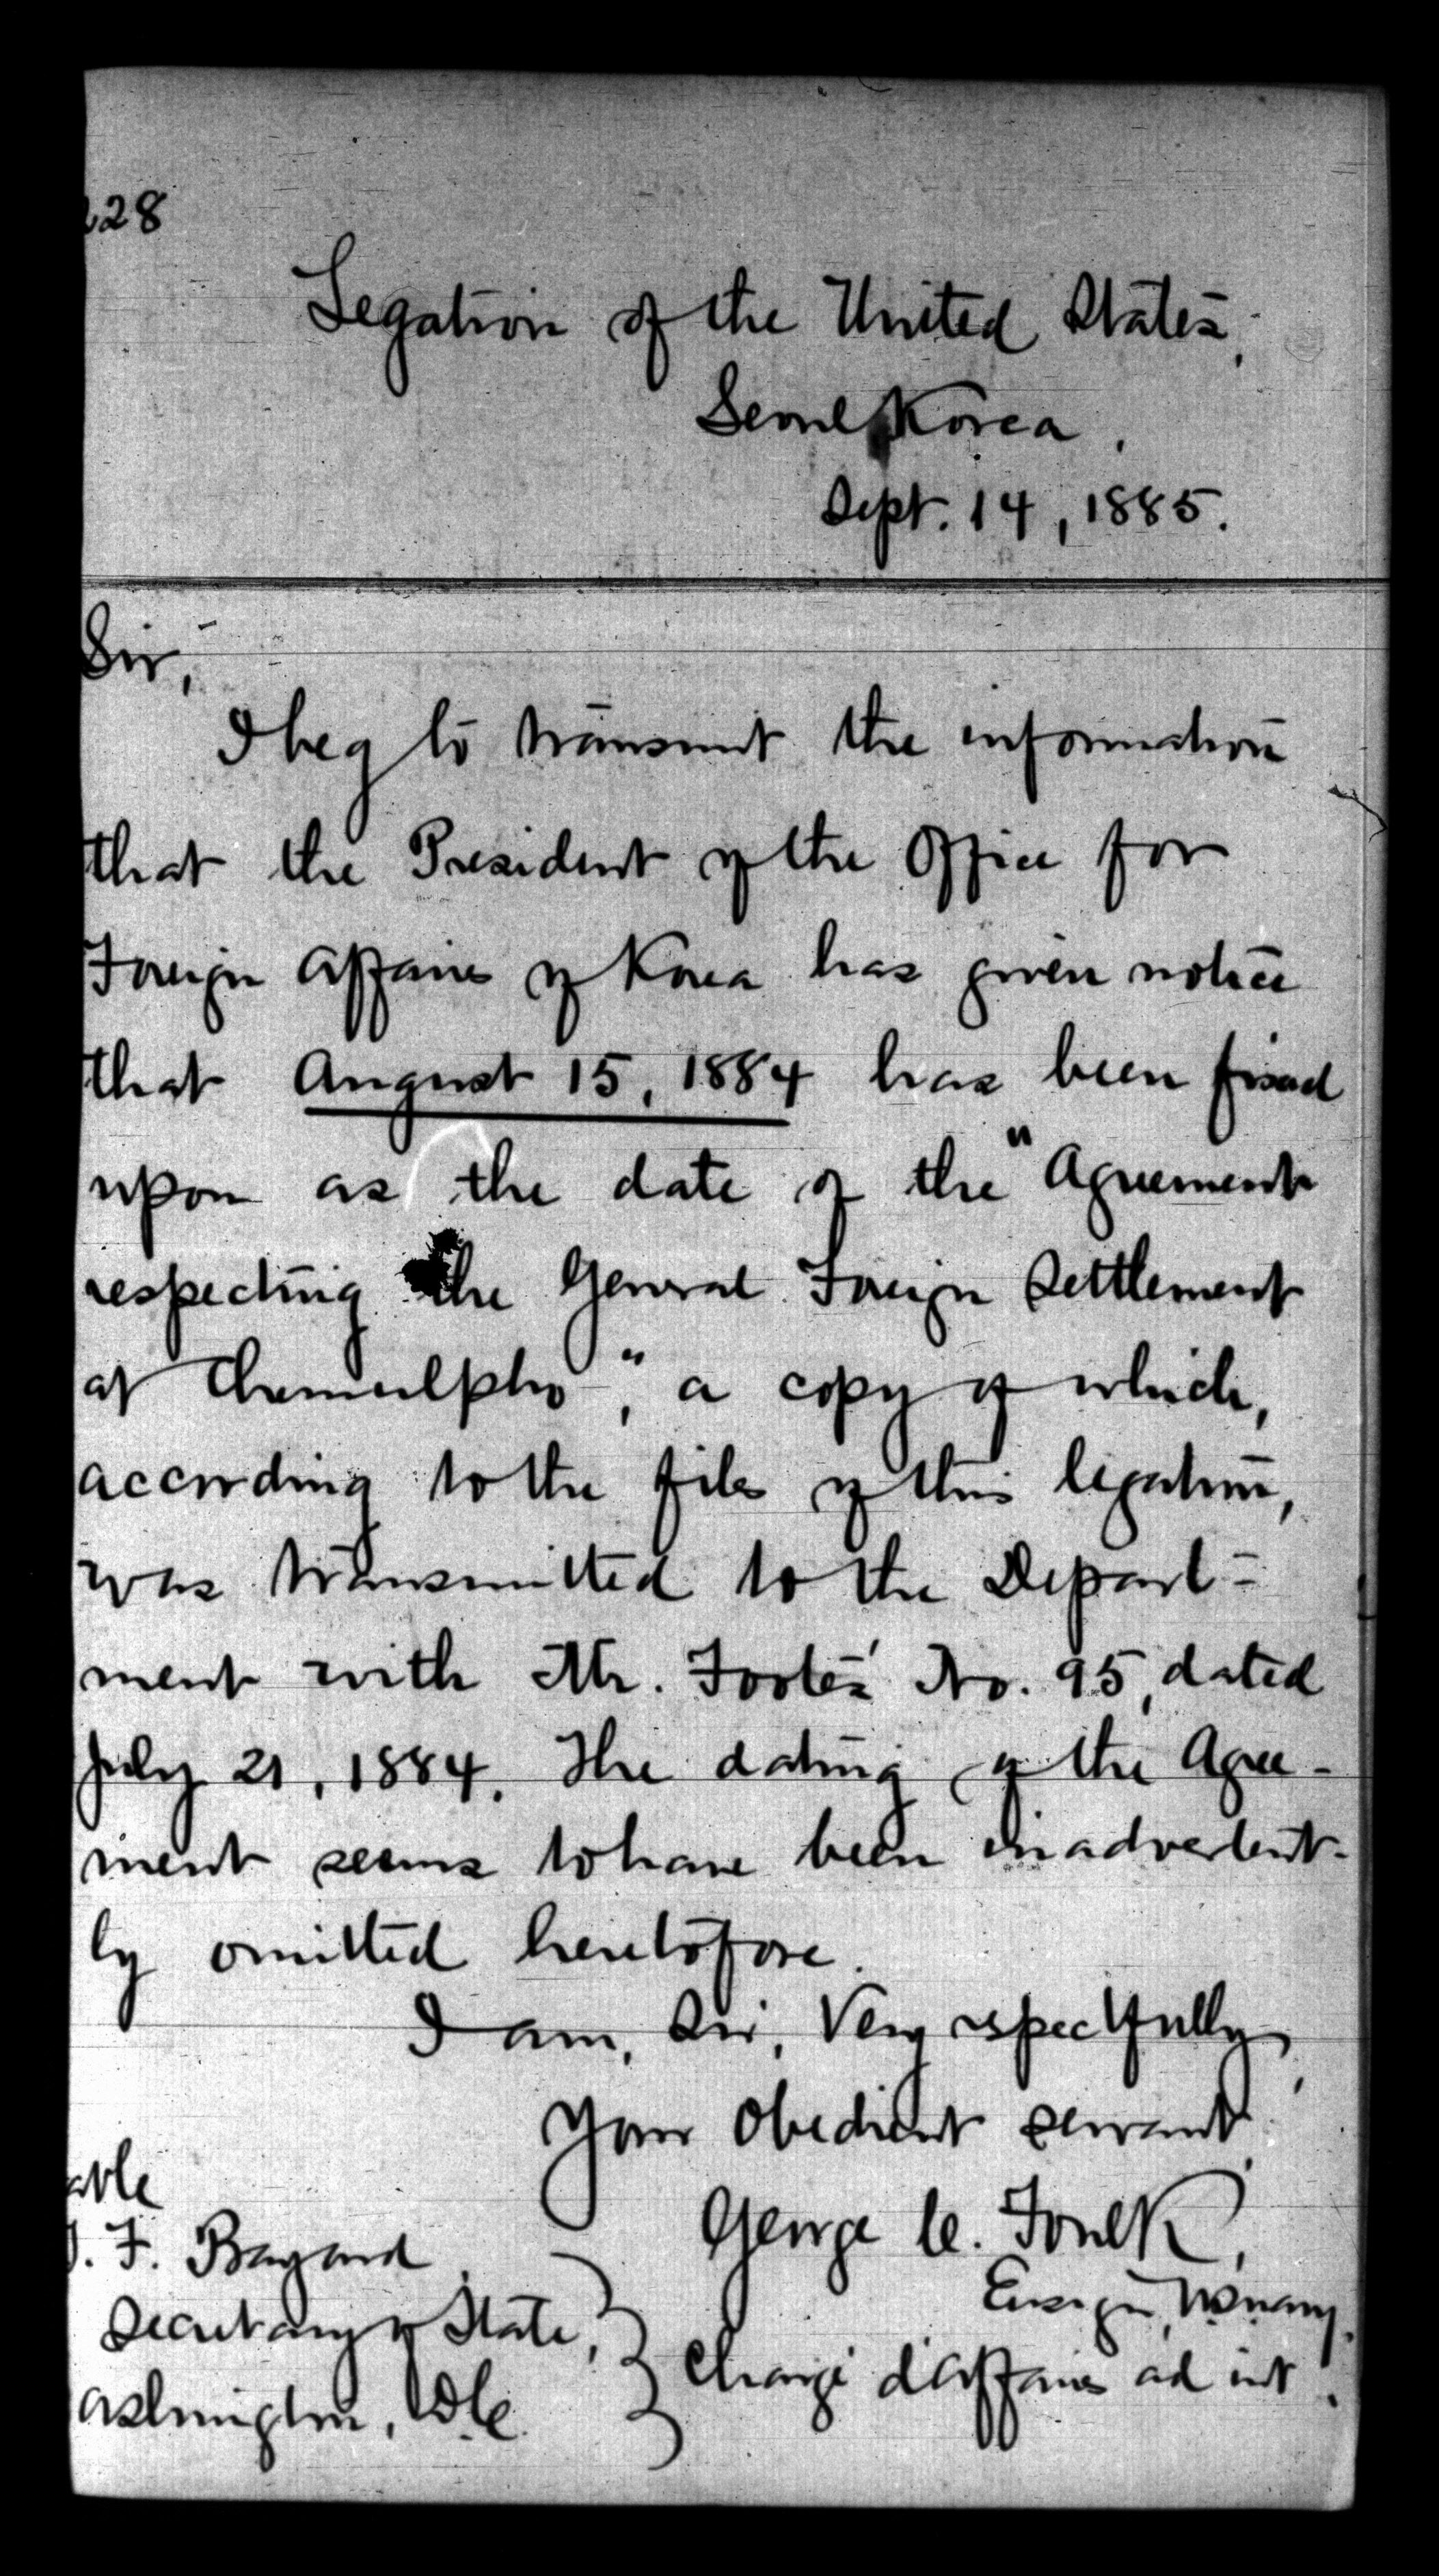 228
Legation of the United States,
Seoul Korea.
Sept. 14, 1885.
Sir,
I beg to transmit the information
that the President of the Office for
Foreign Affairs of Korea has given notice
that August 15, 1884 has been fixed
upon as the date of the "Agreement
respecting the General Foreign Settlement
at Chemulpho", a copy of which,
according to the files of this legation,
was transmitted to the Depart-
ment with Mr. Foote's No. 95, dated
July 21, 1884. The dating of the Agree-
ment seems to have been inadvertent-
ly omitted heretofore.
I am, Sir, Very respectfully,
Your obedient servant
George C. Foulk,
Ensign, U.S. Navy.
Chargé d'Affaires ad int.
able
. F. Bayard
Secretary of State,
ashington, D.C.